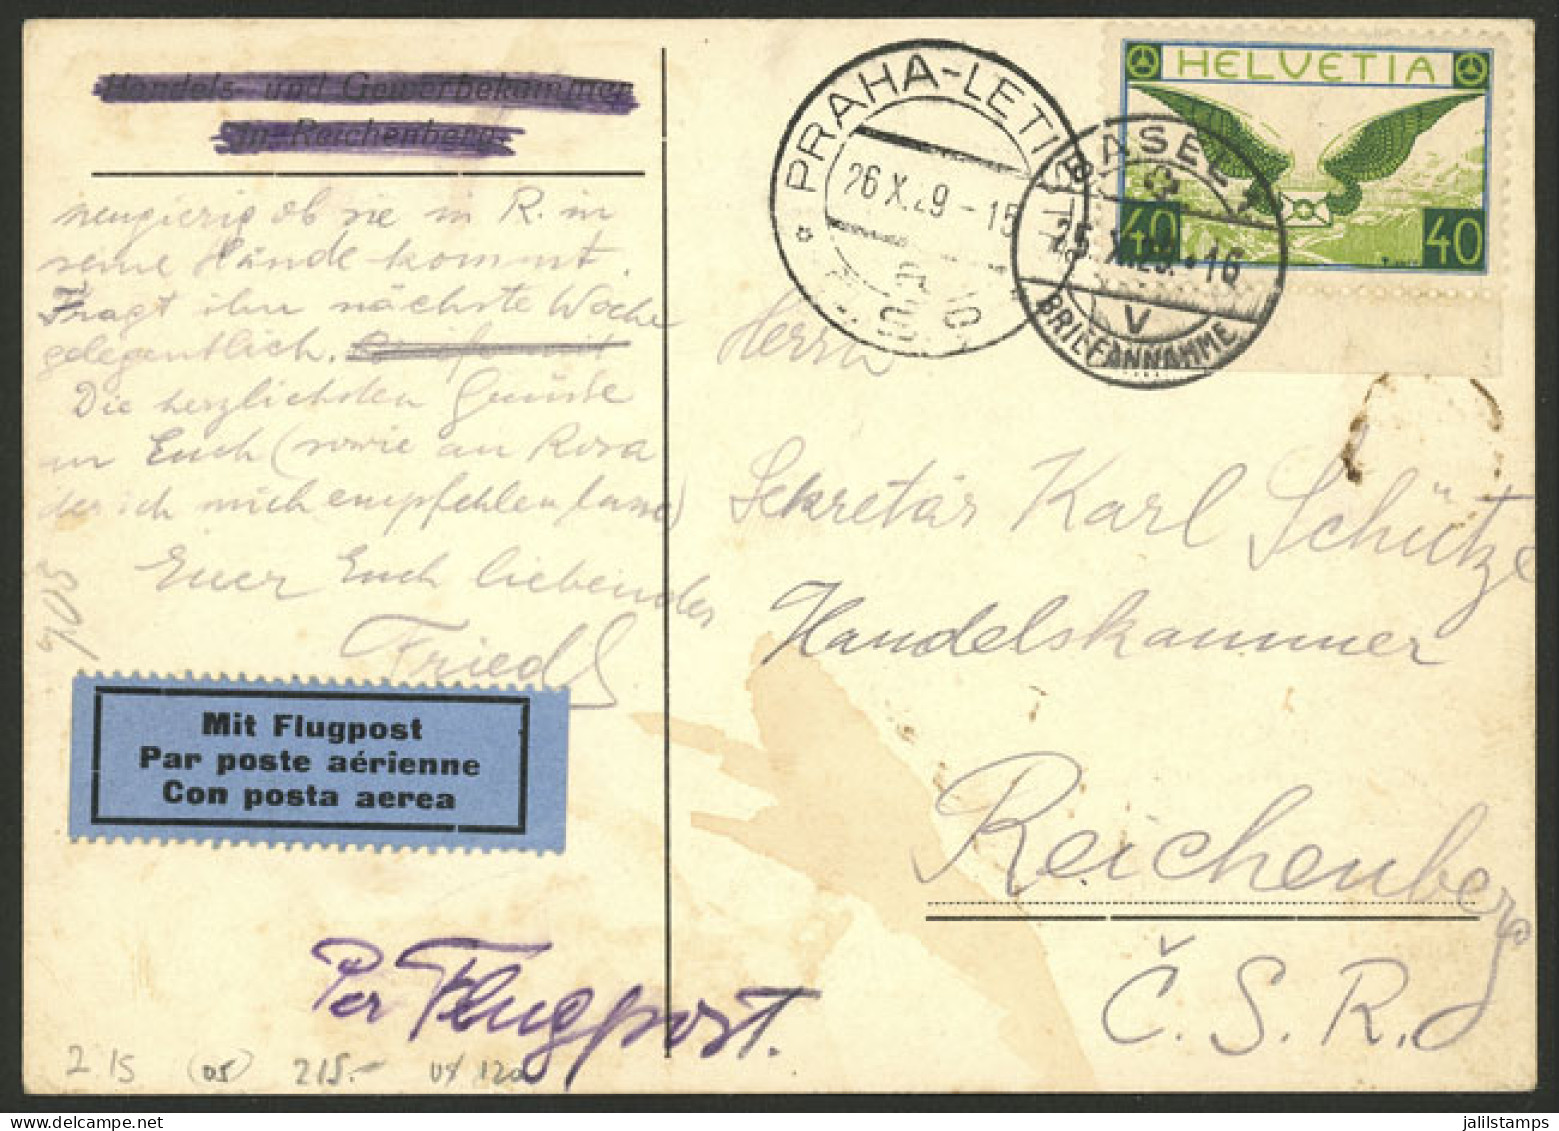 Handels- und Gewerbekammer
in Reichenberg.
neugierig ob sie in R. in
seine Hände kommt.
Fragt ihn nächste Woche
gelegentlich.
Die herzlichsten Grüsse
an Euch (sowie an Rosa
der ich mich empfehlen lasse)
Euer Euch liebender
Friedl
905
Mit Flugpost
Par poste aérienne
Con posta aerea
Per Flugpost.
2.15 (05) 215.-
PRAHA-LETIŠTĚ
26 X.29 -15
HELVETIA
40 40
BASEL 1
25.X.29.-16
V
BRIEFANNAHME
Herrn
Sekretär Karl Schütze
Handelskammer
Reichenberg
Č.S.R.
jalilstamps